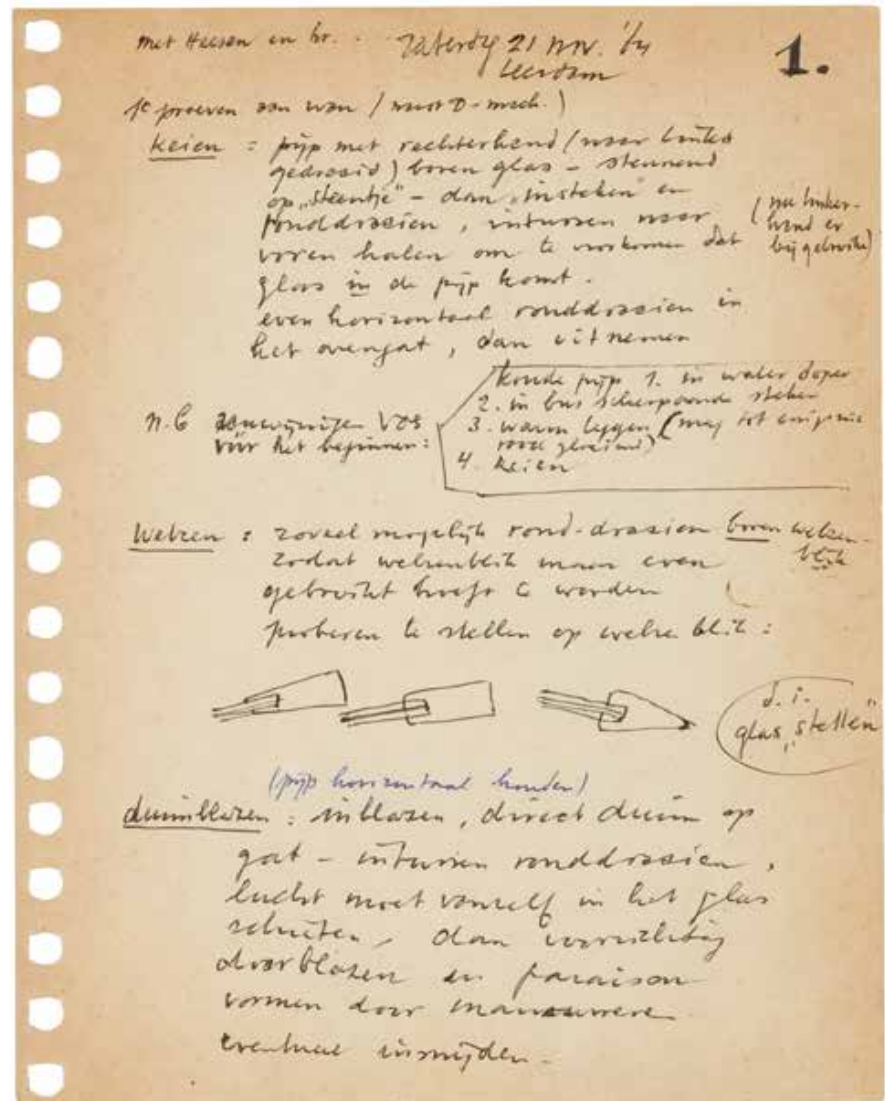 met Heesen en br. . zaterdag 21 nov. '64
Leerdam
1.
1e proeven aan wan / naast D-mach.)
Keien = pijp met rechterhand (naar buiten
gedraaid) boven glas - steunend
op „steentje" - dan „insteken" en
ronddraaien, intussen naar
voren halen om te voorkomen dat
glas in de pijp komt.
(nu linker-
hand er
bij gebruiken)
even horizontaal ronddraaien in
het ovengat, dan uitnemen
n.b aanwijzingen
vóór het beginnen:
koude pijp 1. in water dopen
2. in bus steken
3. warm leggen (mag tot
rood gloeiend)
4. keien
Welzen : zoveel mogelijk rond-draaien boven welzen-
blik
zodat welzenblik maar even
gebruikt hoeft te worden
proberen te stellen op welze blik :
d.i.
glas „stellen"
(pijp horizontaal houden)
duimblazen : inblazen, direct duim op
gat - intussen ronddraaien,
lucht moet vanzelf in het glas
schieten, dan voorzichtig
doorblazen en paraison
vormen door manoeuvere
eventueel insnijden -